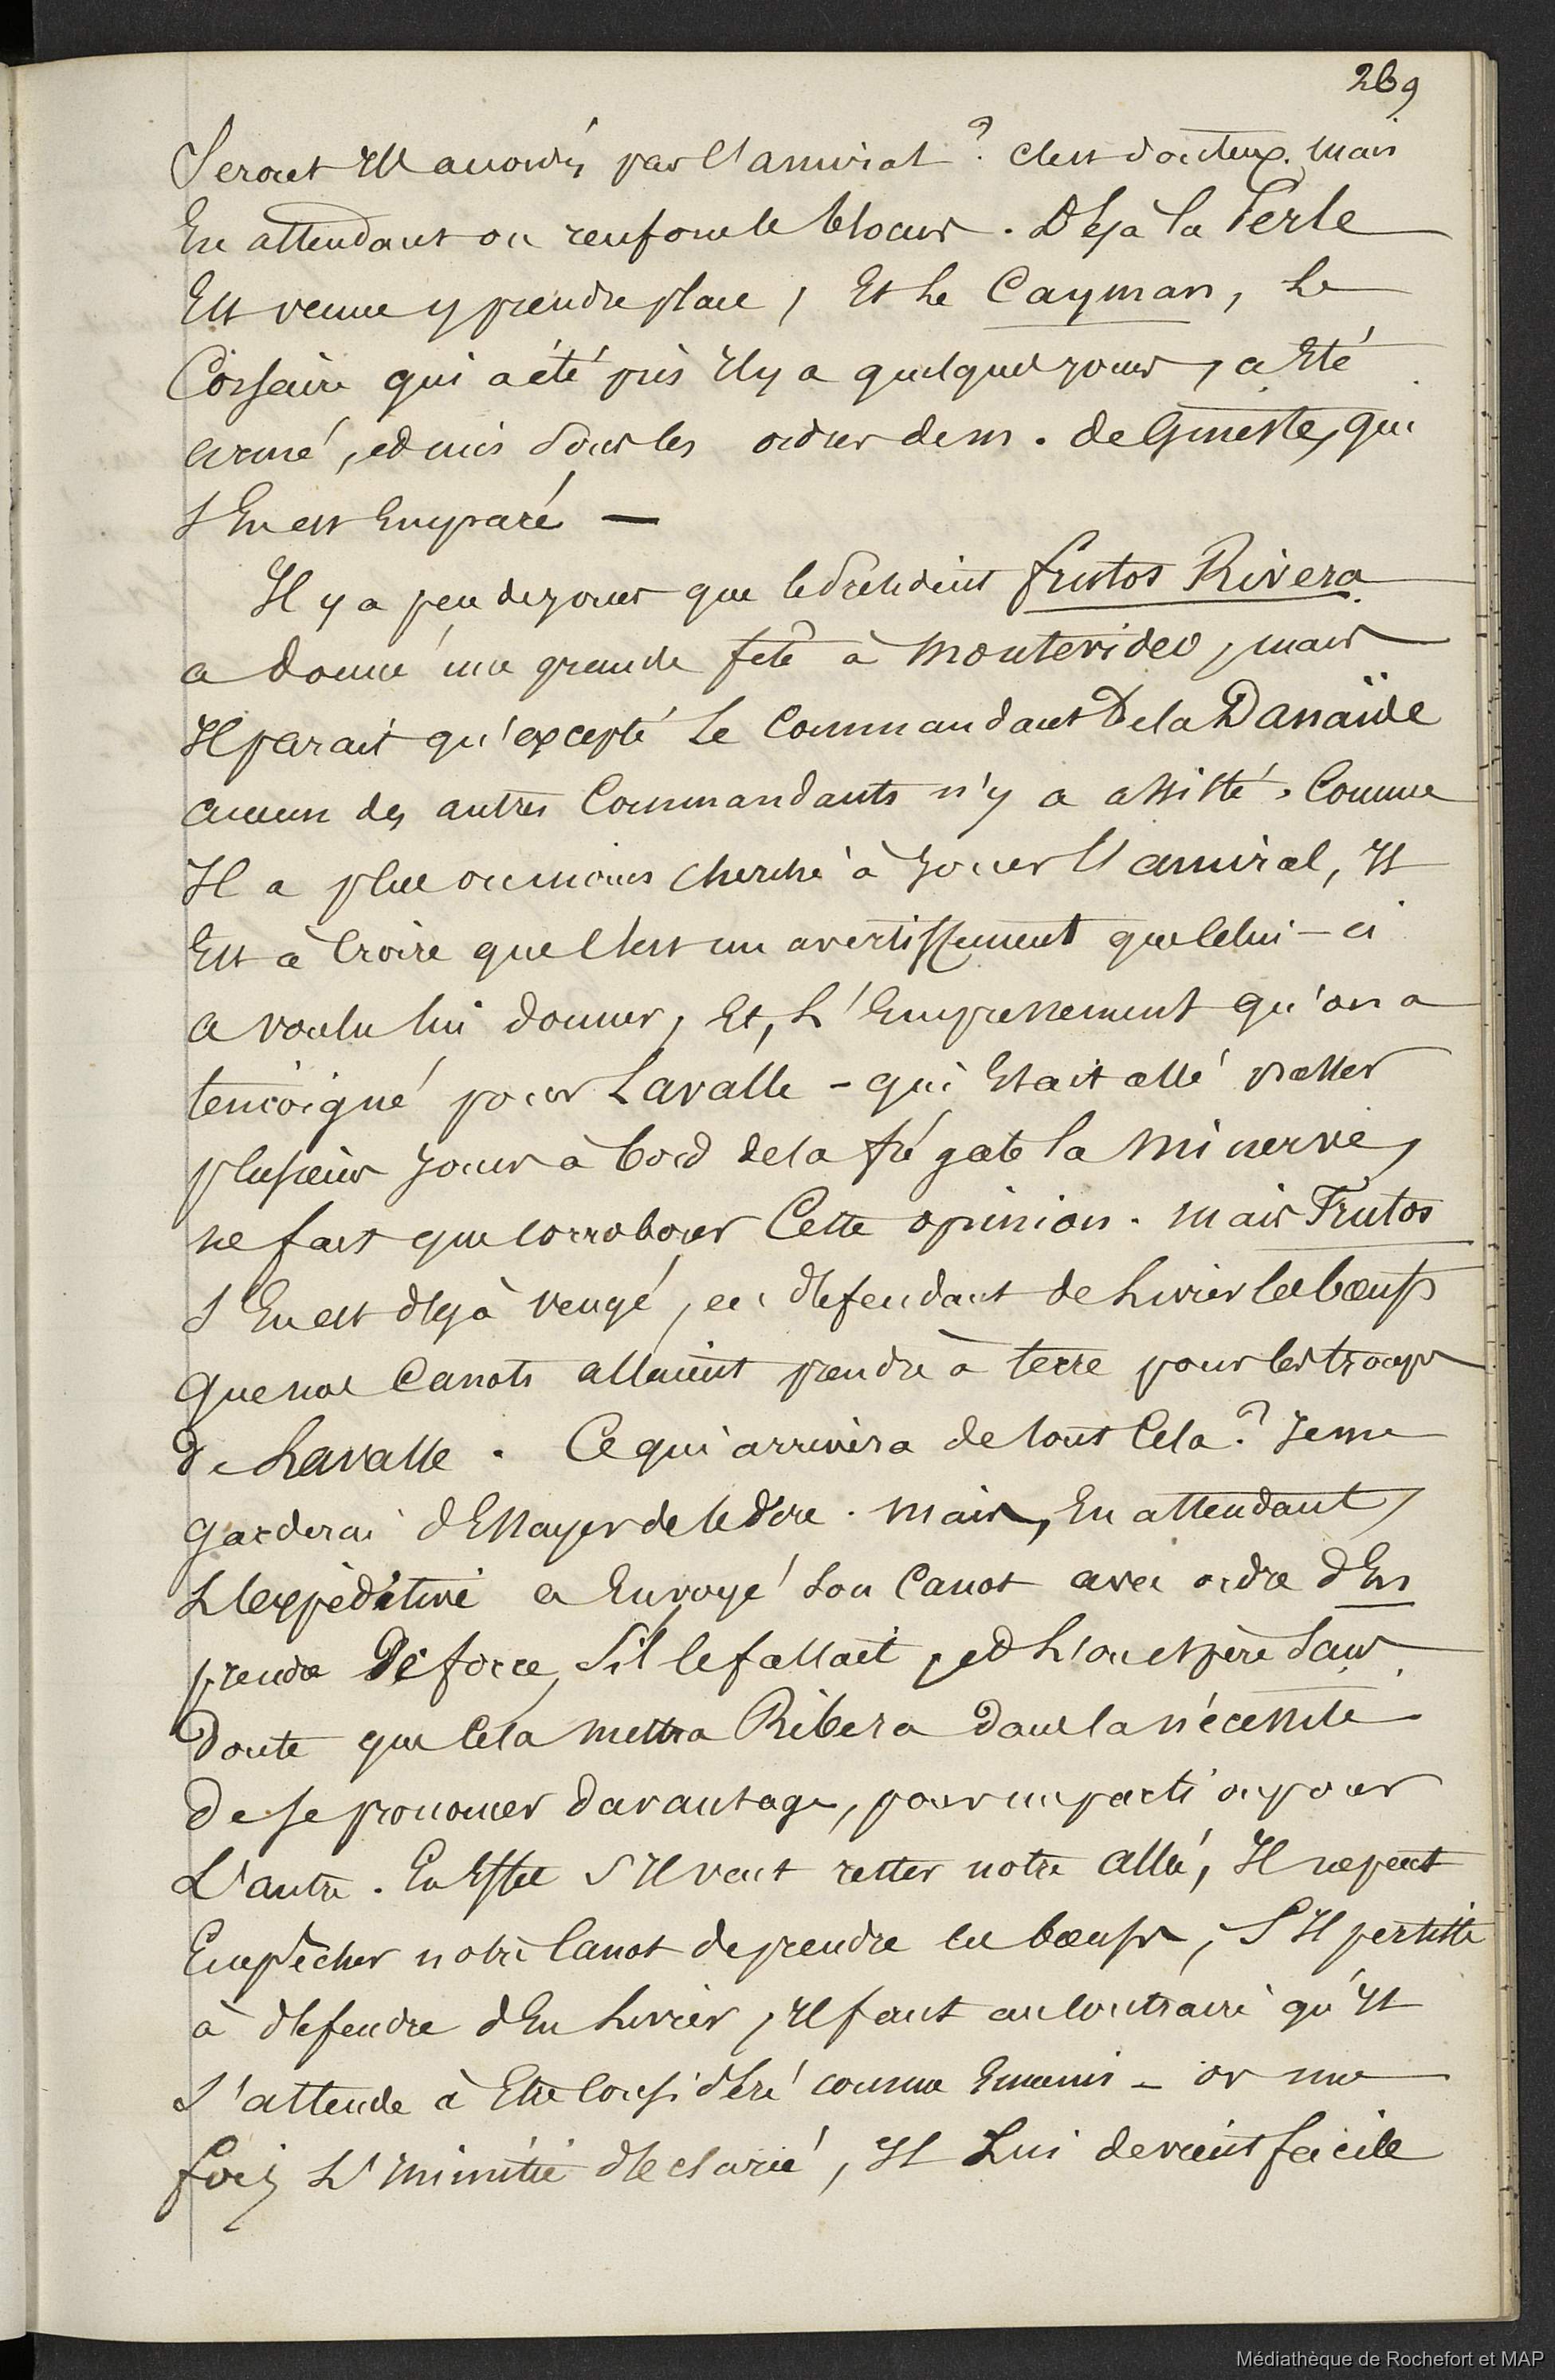 269
Seront Ils accordés par l'amiral ? C'est douteux. Mais
En attendant on renforce le blocus. Déjà la Perle
Est venue y prendre place, Et Le Cayman, Le
Corsaire qui a été pris Il y a quelques jours, a Eté
armé, et mis Sous les ordres de m. de Gineste, qui
S'En est Emparé —
Il y a peu de jours que le Président frutos Rivera
a donné une grande fête à Montevideo, mais
Il parait qu'excepté Le Commandant De la Danaïde
aucun des autres Commandants n'y a assisté. Comme
Il a plus ou moins cherché à Jouer l'amiral, Il
Est à Croire que C'est un avertissement que Celui-ci
a voulu lui donner, Et, L'Empressement qu'on a
temoigné pour Lavalle - qui Etait allé passer
plusieurs Jours à bord de la frégate la Minerve,
ne fait que corroborer Cette opinion. Mais Frutos
S'En est déjà vengé, en défendant de Livrer les bœufs
que nos Canots allaient prendre à terre pour les troupes
de Lavalle. Ce qui arrivera de tout Cela ? Je me
garderai d'Essayer de le dire. Mais, En attendant,
L'expéditive a Envoyé Son Canot avec ordre d'En
prendre De force, S'il le fallait, et L'on espère Sans
Doute que Cela mettra Ribera dans la nécessité
De se prononcer davantage, pour un parti ou pour
L'autre. En Effet S'Il veut rester notre allié, Il ne peut
Empêcher notre Canot de prendre les bœufs, S'Il persiste
à défendre d'En Livrer, Il faut au Contraire qu'Il
S'attende à Etre Considéré comme Ennemi - or une
fois L'Inimitié déclarée, Il Lui devient facile
Médiathèque de Rochefort et MAP